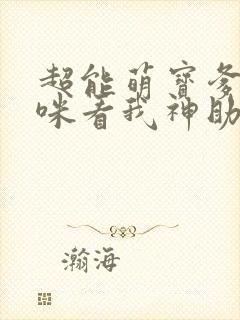 超能萌寳爹
咪看我神助
瀚海